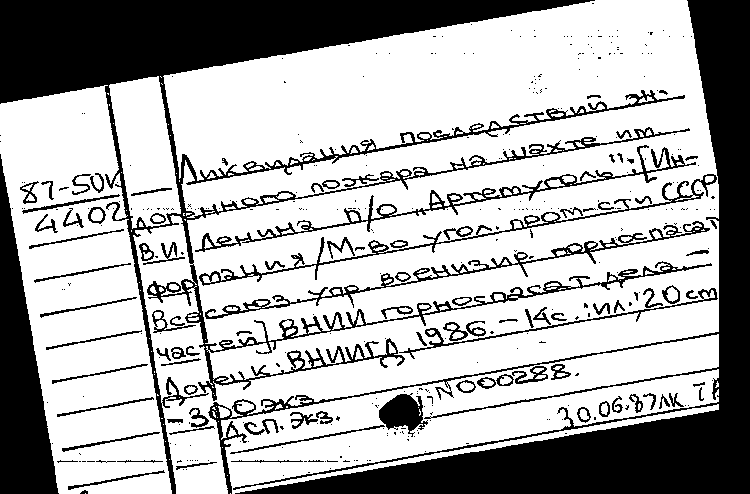 87-50К
4402
Ликвидация последствий эн-
догенного пожара на шахте им.
В.И. Ленина п/о „Артемуголь": [Ин-
формация / М-во угол. пром-сти СССР.
Всесоюз. упр. военизир. горноспасат
частей], ВНИИ горноспасат дела. –
Донецк: ВНИИГД, 1986. – 14с.: ил.; 20 cm
– 300 экз.
ДСП. экз. N000288.
30.06.87 ЛК